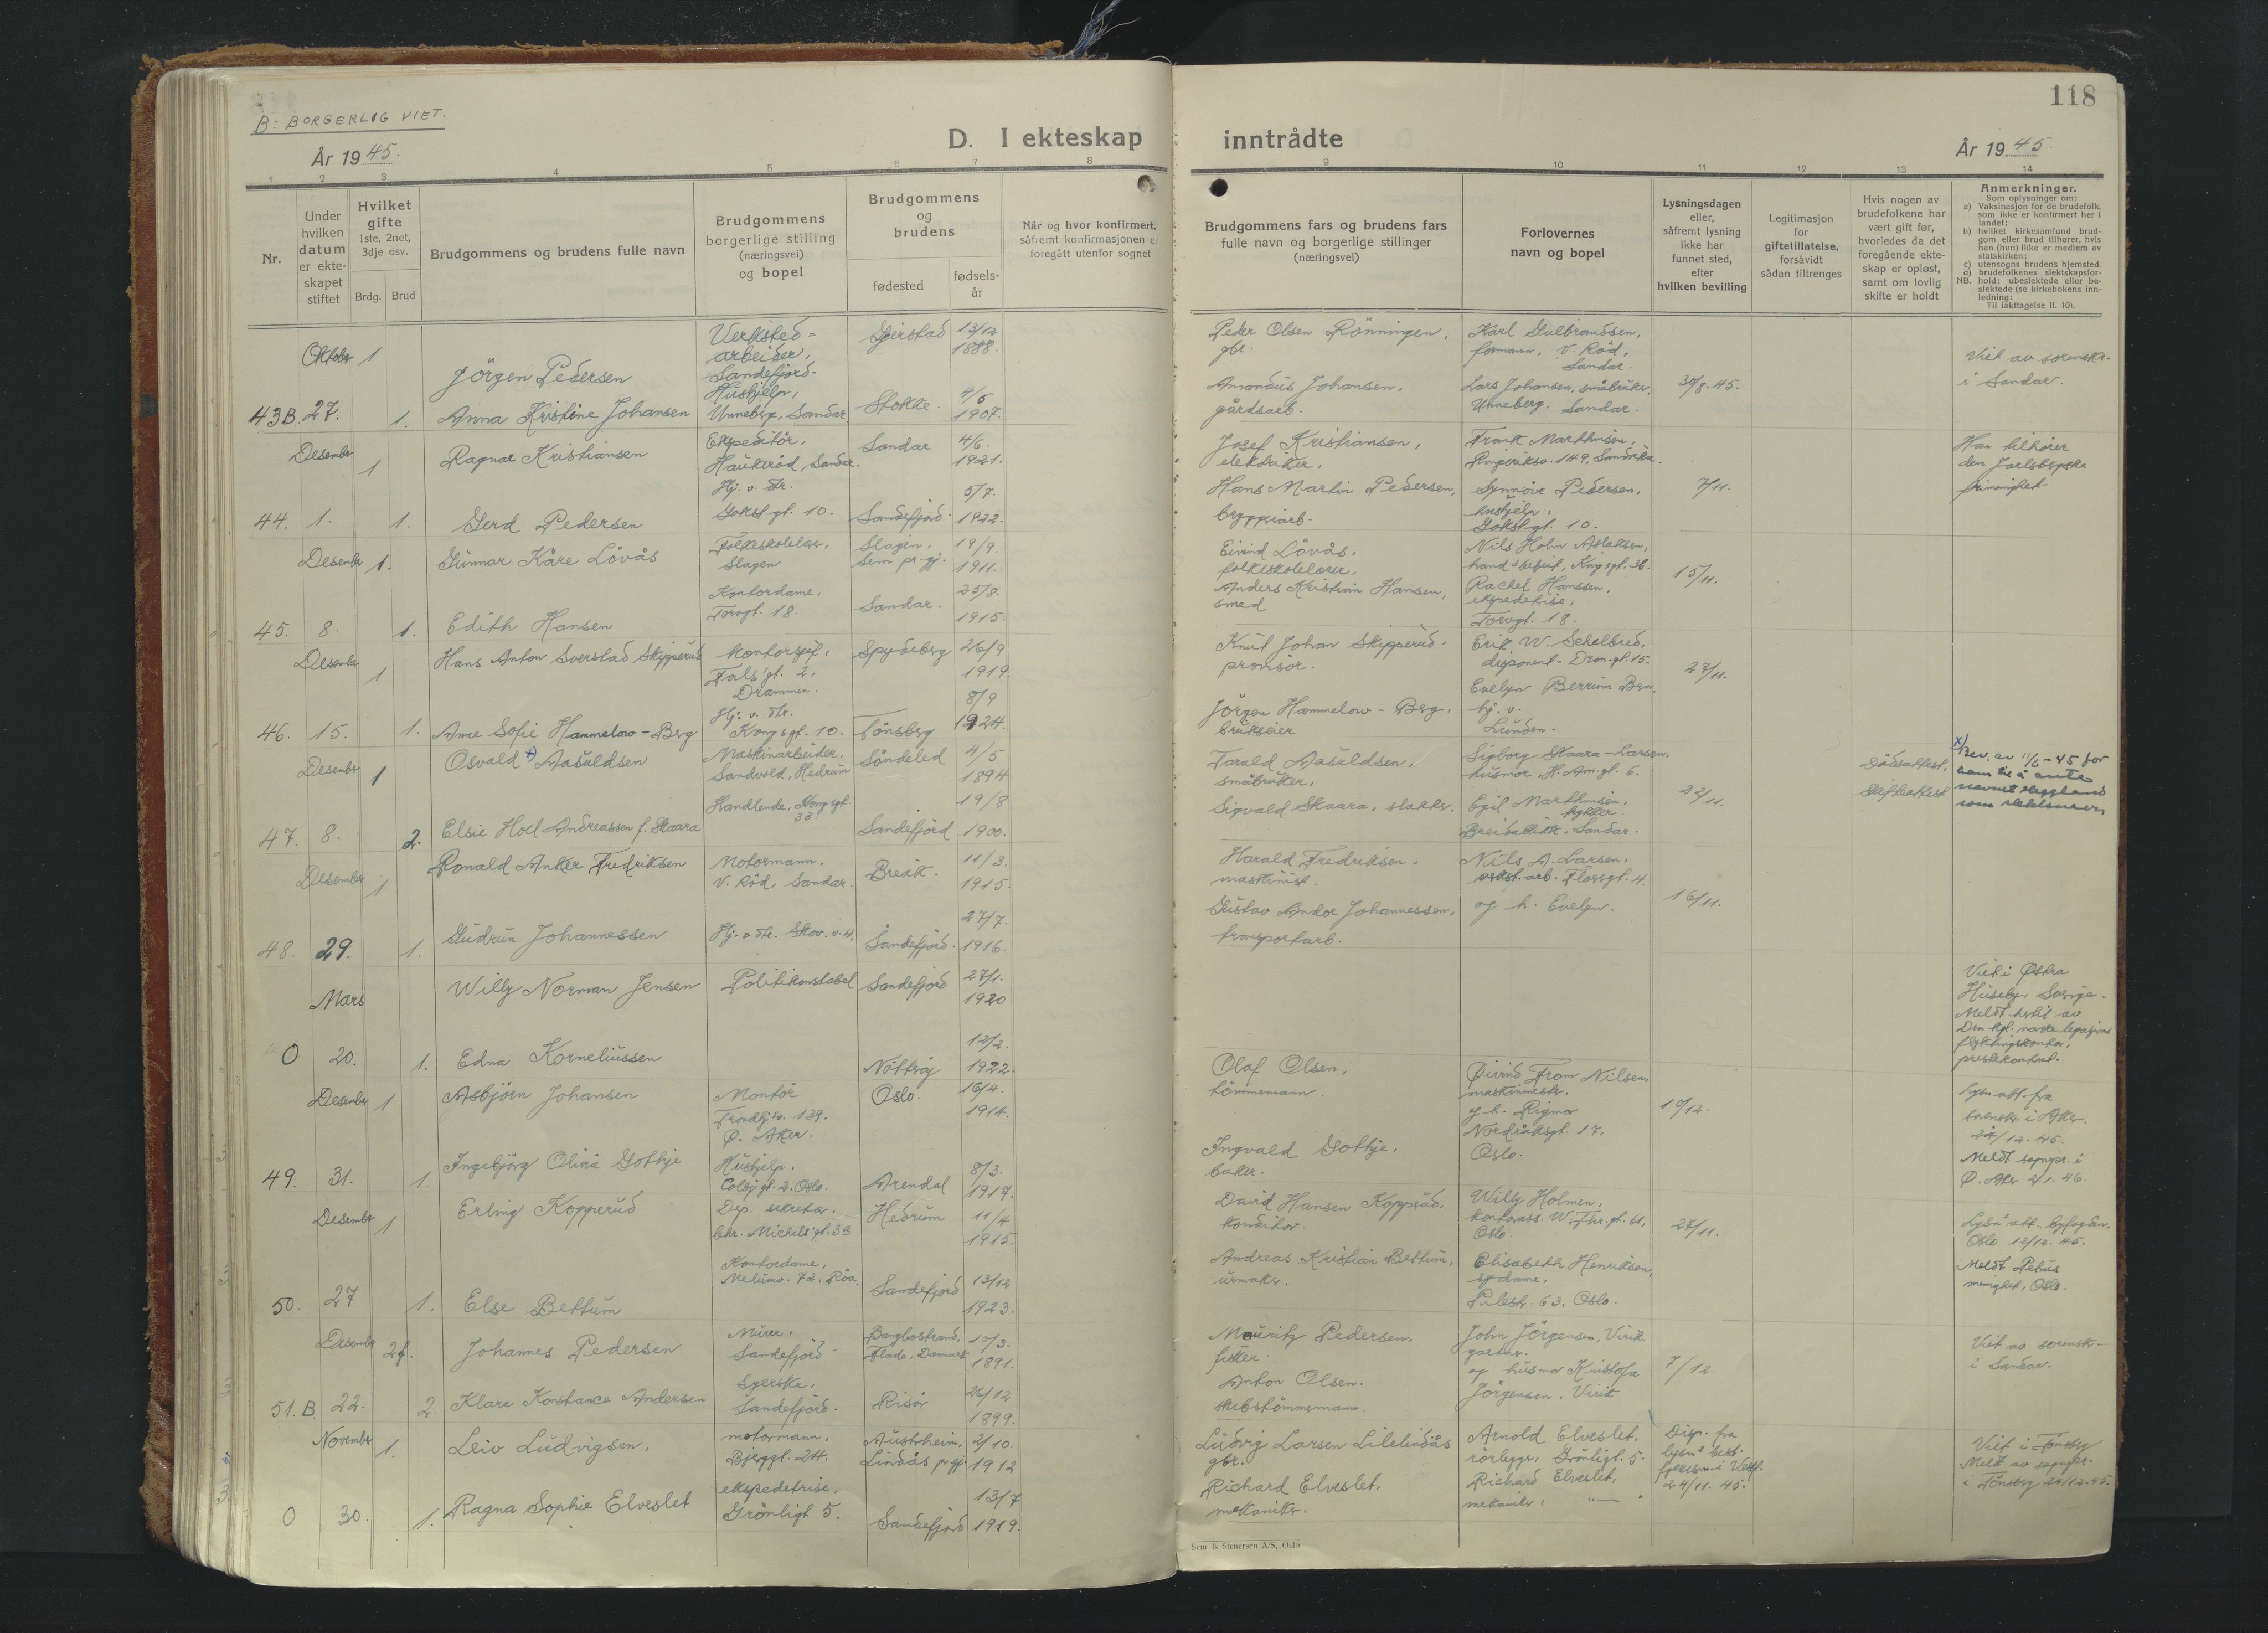 B: BORGERLIG VIET.
118
År 1945.
D. I ekteskap inntrådte
År 1945.
1 2 3 4 5 6 7 8 9 10 11 12 13 14
Nr.
Under
hvilken
datum
er ekte-
skapet
stiftet
Hvilket
gifte
1ste, 2net,
3dje osv.
Brdg. Brud
Brudgommens og brudens fulle navn
Brudgommens
borgerlige stilling
(næringsvei)
og bopel
Brudgommens
og
brudens
fødested
fødsels-
år
Når og hvor konfirmert,
såfremt konfirmasjonen er
foregått utenfor sognet
Brudgommens fars og brudens fars
fulle navn og borgerlige stillinger
(næringsvei)
Forlovernes
navn og bopel
Lysningsdagen
eller,
såfremt lysning
ikke har
funnet sted,
efter
hvilken bevilling
Legitimasjon
for
giftetillatelse,
forsåvidt
sådan tiltrenges
Hvis nogen av
brudefolkene har
vært gift før,
hvorledes da det
foregående ekte-
skap er opløst,
samt om lovlig
skifte er holdt
Anmerkninger.
Som oplysninger om:
a) Vaksinasjon for de brudefolk,
som ikke er konfirmert her i
landet;
b) hvilket kirkesamfund brud-
gom eller brud tilhører, hvis
han (hun) ikke er medlem av
statskirken;
c) utensogns brudens hjemsted.
d) brudefolkenes slektskapsfor-
hold: ubeslektede eller be-
slektede (se kirkebokens inn-
ledning:
NB. Til iakttagelse II. 10).
43B. Oktober 27. 1 1.
Jörgen Pedersen
Anna Kristine Johansen
Verksted-
arbeider,
Sandefjord.
Hushjelp,
Unneberg, Sandar
Gjerstad 13/12
1888.
Stokke. 4/5
1907.
Peder Olsen Rönningen,
gbr.
Amandus Johansen,
gårdsarb.
Karl Gulbrandsen,
formann, V. Röd,
Sandar.
Lars Johansen, småbruker,
Unneberg, Sandar.
30/8.45.
Viet av sorenskr.
i Sandar.
44. Desember 1. 1 1.
Ragnar Kristiansen
Gerd Pedersen
Ekspeditör,
Haukeröd, Sandar.
Hj. v. Str.
Gokst.gt. 10.
Sandar 4/6.
1921.
Sandefjord. 5/7.
1922.
Josef Kristiansen,
elektriker,
Hans Martin Pedersen,
bryggeriarb.
Frank Marthinsen,
Ringeriksv. 149, Sandvika.
Synnöve Pedersen,
hushjelp,
Gokst.gt. 10.
7/11.
Han tilhører
den Jarlsbergske
frimenighet.
45. Desember 8. 1. 1.
Gunnar Kåre Lövås
Edith Hansen
Folkeskolelærer,
Slagen
Kontordame,
Torvgt. 18.
Slagen,
Sem pr.gj. 19/9.
1911.
Sandar. 25/8.
1915.
Eivind Lövås,
folkeskolelærer.
Anders Kristian Hansen,
smed
Nils Holm Aslaksen,
Rachel Hanssen,
ekspedetrise,
Torvgt. 18.
15/11.
46. Desember 15. 1 1.
Hans Anton Sverstad Skipperud
Anne Sofie Hammelow-Berg
Kontorsjef,
Drammen.
Hj. v. Str.
Kongsgt. 10.
Spydeberg 26/9
1919.
Tönsberg 8/9
1924.
Knut Johan Skipperud.
provisor.
Jörgen Hammelow-Berg,
brukseier
disponent. Dron.gt. 15.
Evelyn Berrum Ben.
hj. v.
Lunden.
27/11.
47. Desember 8. 1 2.
Osvald x) Aasuldsen
Elsie Hoel Andreassen f. Skaara
Maskinarbeider.
Sandvold, Hedrum
Handlende, Kongsgt.
33
Söndeled 4/5
1894
Sandefjord 19/8
1900.
Tarald Aasuldsen,
småbruker,
Sigvald Skaara, slakter.
Sigborg Skaara-Larsen,
husmor, H. Am.gt. 6.
Egil Marthinsen,
Breidablikk, Sandar.
22/11.
Dödsattest.
Skifteattest
x) Bev. av 11/6-45 for
ham til å anta
navnet Heggland
som slektsnavn
48. Desember 29. 1 1.
Ronald Anker Fredriksen
Gudrun Johannessen
Motormann.
V. Röd, Sandar.
Hj. v. Str. Skov. v. 4.
Brevik. 11/3.
1915.
Sandefjord. 27/7.
1916.
Harald Fredriksen.
maskinist.
Gustav Andor Johannessen,
transportarb.
Nils A. Larsen,
verkst. arb. Flørsgt. 4.
og h. Evelyn.
16/11.
0 Mars 20. 1.
Willy Norman Jensen
Edna Korneliussen
Politikonstabel
Sandefjord 27/1.
1920
Nötteröy 12/2.
1922.
Viet i Østra
Huseby, Sverige.
Meldt hertil av
Den kgl. norske legasjons
flyktningskontor,
prestekontoret.
49. Desember 31. 1 1.
Asbjörn Johansen
Ingebjörg Olivia Gothje
Montör
Trondhj.v. 139.
Ø. Aker.
Hushjelp.
Colbj.gt. 2. Oslo.
Oslo. 16/4.
1914.
Arendal 8/3.
1917.
Olaf Olsen,
tömmermann.
Ingvald Gothje.
baker.
Øivind From Nilsen,
maskinmester,
og h. Rigmor
Nordråksgt. 17.
Oslo.
10/12.
Lysn.att. fra
sorenskr. i Aker.
22/12. 45.
Meldt sognepr. i
Ø. Aker 2/1. 46.
50. Desember 27 1 1.
Erling Kopperud
Else Bettum
Dep. sekretær.
Chr. Michels'gt. 3a
Kontordame,
Melumv. 72, Röa.
Hedrum 11/4
1915.
Sandefjord 13/12
1923.
David Hansen Kopperud.
konditor.
Andreas Kristian Bettum,
urmaker.
Willy Holmen,
kontorass. W. Thr.gt. 61,
Oslo.
Elisabeth Henriksen,
sydame.
Pilestr. 63, Oslo.
27/11.
Lysn.att. byfogden.
Oslo 12/12. 45.
Meldt Petrus
menighet, Oslo.
51.B. Desember 22. 2f. 2.
Johannes Pedersen
Klara Konstance Andersen
Murer.
Sandefjord.
Syerske.
Sandefjord.
Bangbostrand,
Flade, Danmark 10/3.
1891.
Risör 26/12
1899.
Mauritz Pedersen.
fisker.
Anton Olsen.
skibstömmermann.
John Jörgensen, Virik
gartner.
og husmor Kristofa
Jörgensen, Virik
7/12.
Viet av sorenskr.
i Sandar.
0 November 30. 1. 1.
Leiv Ludvigsen.
Ragna Sophie Elveslet
motormann,
Bjerggt. 24.
ekspedetrise,
Grönligt 5.
Austrheim,
Lindås pr.gj. 2/10.
1912
Sandefjord 13/7
1919.
Ludvig Larsen Lilelindås
gbr.
Richard Elveslet.
mekaniker.
Arnold Elveslet.
rörlegger, Grönligt. 5.
Richard Elveslet,
mekaniker, — "
Disp. fra
lysn. best.
24/11. 45.
Viet i Tönsberg
Meldt av sognepr.
i Tönsberg 24/12.45.
Sem & Stenersen A/S, Oslo